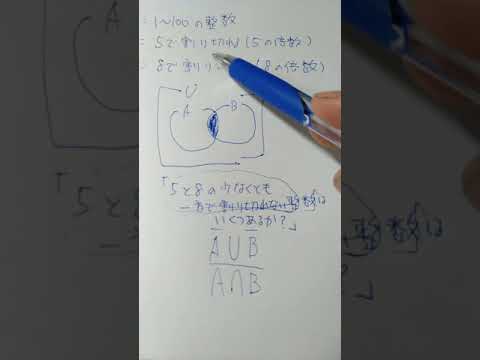 = 1~100の整数
= 5で割り切れ(5の倍数)
= 8で割り (8の倍数)
U
A
B
「5と8の少なくとも
一方で割り切れない整数は
いくつあるか?」
A̅ ∪ B̅
A∩B